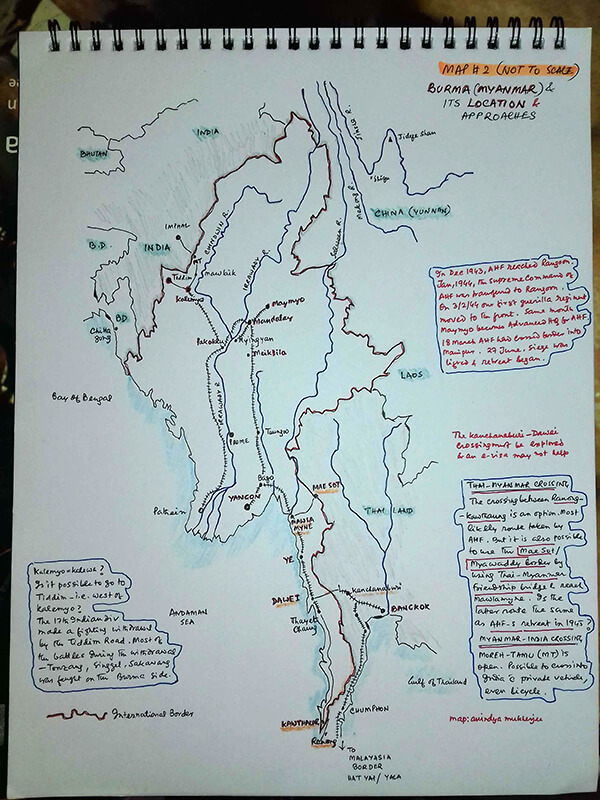 MAP # 2 (NOT TO SCALE)
BURMA (MYANMAR) &
ITS LOCATION &
APPROACHES
INDIA
BHUTAN
Jidege Shan
Shigu
Mekong R.
Salween R.
CHINA (YUNNAN)
IMPHAL
B.D.
INDIA
CHINDWIN R.
IRRAWADDY R.
Tiddim
Mawlaik
Kalemyo
BD
Chitta
gong
Maymyo
Mandalay
Pakokku
Myingyan
Meiktila
IRRAWADDY R.
LAOS
Bay of Bengal
In Dec 1943, AHF reached Rangoon.
Jan, 1944, the Supreme Command of
AHF was transferred to Rangoon.
On 3/2/44 our first guerilla regiment
moved to the front. Same month
Maymyo becomes Advanced HQ for AHF
18 March AHF had crossed border into
Manipur. 27 June, Siege was
lifted & retreat began.
The Kanchanaburi-Dawei
crossing must be explored
& an e-visa may not help
PROME
Toungoo
Bago
YANGON
Pathein
MAE SOT
MAWLA
MYNE
THAILAND
YE
DAWEI
Thayet
Chaung
Kanchanaburi
BANGKOK
ANDAMAN
SEA
Gulf of Thailand
THAI-MYANMAR CROSSING
The crossing between Ranong-
Kawthaung is an option most
likely route taken by
AHF. But it is also possible
to use the Mae Sot/
Myawaddy border by
using Thai-Myanmar
friendship bridge & reach
Mawlamyne. Is the
later route the same
as AHF-S retreat in 1945?
MYANMAR-INDIA CROSSING
MOREH-TAMU (MT) is
open. Possible to cross into
India c private vehicle,
even bicycle.
Kalemyo-Kalewa?
Is it possible to go to
Tiddim - i.e. west of
Kalemyo?
The 17th Indian div
made a fighting withdrawal
by the Tiddim Road. Most of
the battles during the withdrawal
- Tonzang, Singgel, Sakawng
was fought on the Burma side.
International Border
KAWTHAUNG
Ranong
CHUMPHON
TO
MALAYASIA
BORDER
HAT YAI / YALA
map: anindya mukherjee